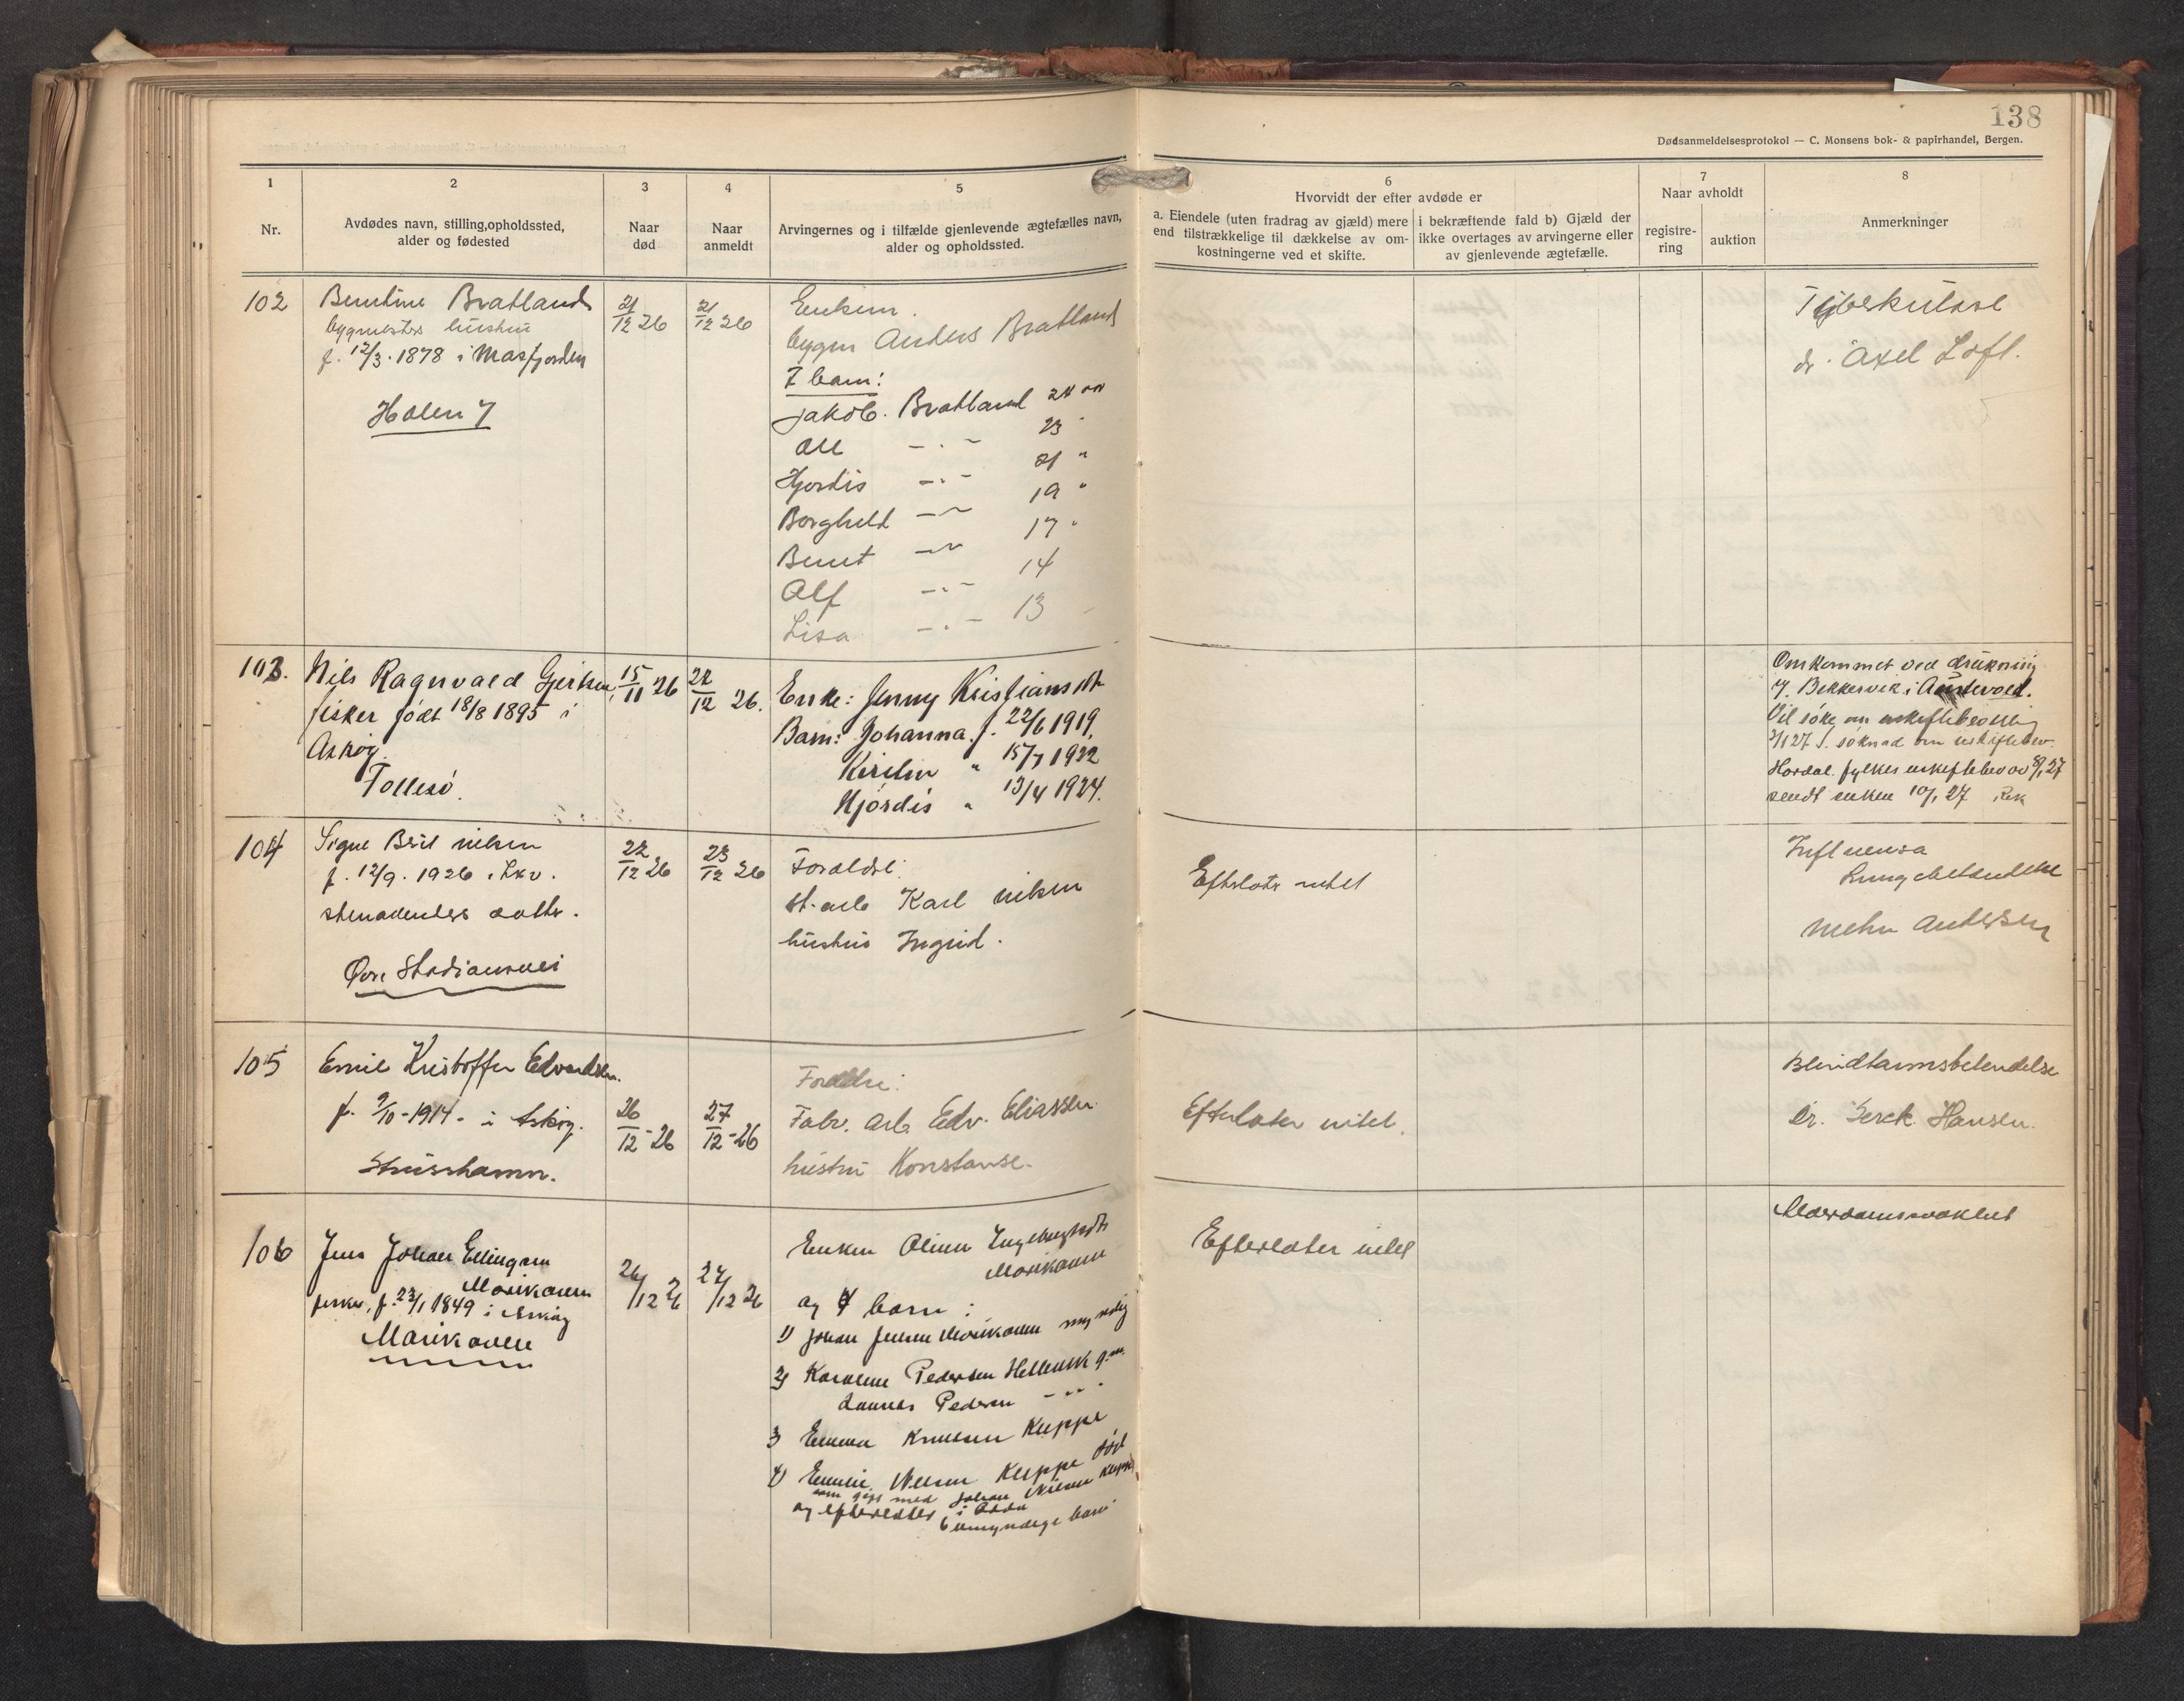 138
Dødsanmeldelsesprotokol — C. Monsens bok- & papirhandel, Bergen.
1
Nr.
2
Avdødes navn, stilling, opholdssted,
alder og fødested
3
Naar
død
4
Naar
anmeldt
5
Arvingernes og i tilfælde gjenlevende ægtefælles navn,
alder og opholdssted.
6
Hvorvidt der efter avdøde er
a. Eiendele (uten fradrag av gjæld) mere
end tilstrækkelige til dækkelse av om-
kostningerne ved et skifte.
i bekræftende fald b) Gjæld der
ikke overtages av arvingerne eller
av gjenlevende ægtefælle.
7
Naar avholdt
registre-
ring
auktion
8
Anmerkninger
102
Bentine Bratland
bygmesters hustru
f. 12/3. 1878 i Masfjorden
Holen 7
21/12 26
21/12 26
Enkem.
bygm Anders Bratland
7 barn:
Jakob. Bratland 24 aar
Ole -"- 23
Hjordis -"- 21 "
Borghild -"- 19 "
Bernt -"- 17 "
Alf -"- 14
Lisa -"- 13
Tuberkulose
dr. Axel Loft.
103.
Nils Ragnvald Gjertsen,
fisker født 18/8 1895 i
Askøy.
Follesö.
15/11 26
22/12 26.
Enke: Jenny Kristiansdt
Barn: Johanna f. 22/6 1919,
Kirsten " 15/7 1922
Hjördis " 13/4 1924.
Omkommet ved drukning
v. Bekkervik i Austevold.
Vil söke om uskiftebevilling
3/1 27 S. söknad om uskiftebev.
Hordal. fylkes uskiftebev av 8/1 27
sendt enken 10/1 27
104
Signe Brit Nilsen
f. 12/9. 1926 i Lkv.
stenarbeiders datter.
Øvre Stadionvei
22/12 26
23/12 26
Foreldre:
st. arb Karl Nilsen
hustru Ingrid.
Efterlater intet
Influensa
Lungebetendelse
Mohn Andersen
105
Emil Kristoffer Edvardsen.
f. 9/10-1914- i Askøy.
Strusshamn.
26/12-26
27/12-26
Foreldre:
Fabr. arb. Edv. Eliassen.
hustru Konstanse.
Efterlater intet.
Blindtarmsbetendelse
Dr. Gerck Hansen.
106
Jens Johan Ellingsen
Marikoven
fisker, f. 23/1 1849 i Askøy
Marikoven
26/12 26
27/12 26
Enken Oline Ingebrigtsdtr
Marikoven
og 4 barn:
1) Johan Jensen Marikoven myndig
2) Karoline Pedersen Hellevik g.m.
Laurits Pedersen -"-
3) Emma Knutsen Kleppe
4) Emilie Nilsen Kleppe död
som gift med Johan Nilsen Kleppe
i Askøy
og efterlater
6 umyndige barn
Efterlater intet
Alderdomssvakhet